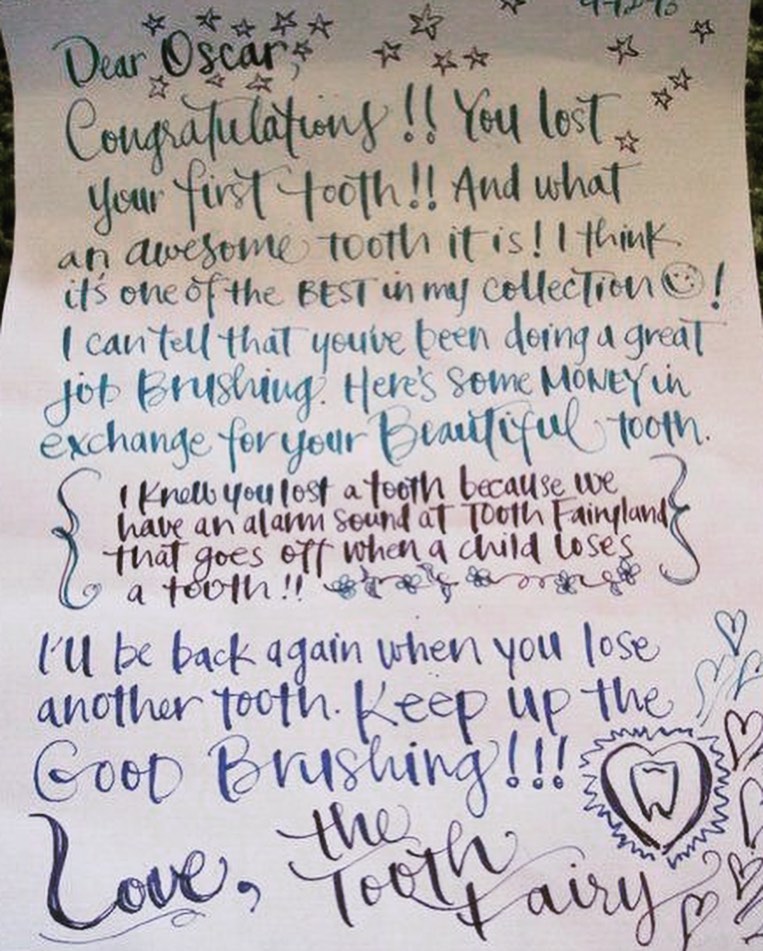 Dear Oscar,
Congratulations!! You lost
your first tooth!! And what
an awesome tooth it is! I think
it's one of the BEST in my collection !
I can tell that you've been doing a great
job Brushing. Here's some MONEY in
exchange for your Beautiful tooth.
{ I knew you lost a tooth because we
have an alarm sound at Tooth Fairyland
that goes off when a child loses
a tooth!! }
I'll be back again when you lose
another tooth. Keep up the
Good Brushing!!!
Love, the
Tooth
Fairy